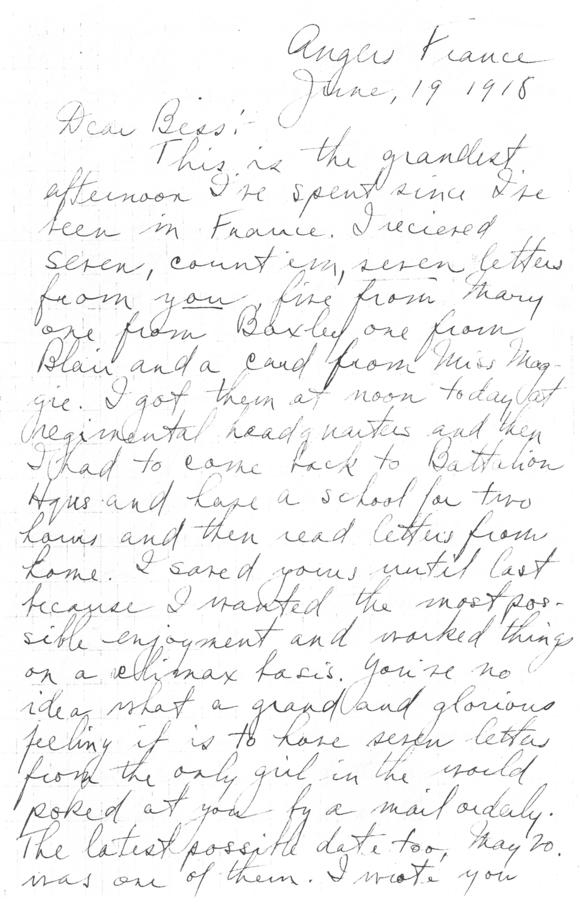 Angers France
June, 19 1918
Dear Bess:-
This is the grandest
afternoon I've spent since I've
been in France. I recieved
seven, count 'em, seven letters
from you, five from Mary
one from Boxley one from
Blair and a card from Miss Mag-
gie. I got them at noon today at
regimental headquarters and then
I had to come back to Battalion
Hqrs and have a school for two
hours and then read letters from
home. I saved yours until last
because I wanted the most pos-
sible enjoyment and worked things
on a climax basis. You've no
idea what a grand and glorious
feeling it is to have seven letters
from the only girl in the world
poked at you by a mail orderly.
The latest possible date too, May 20.
was one of them. I wrote you